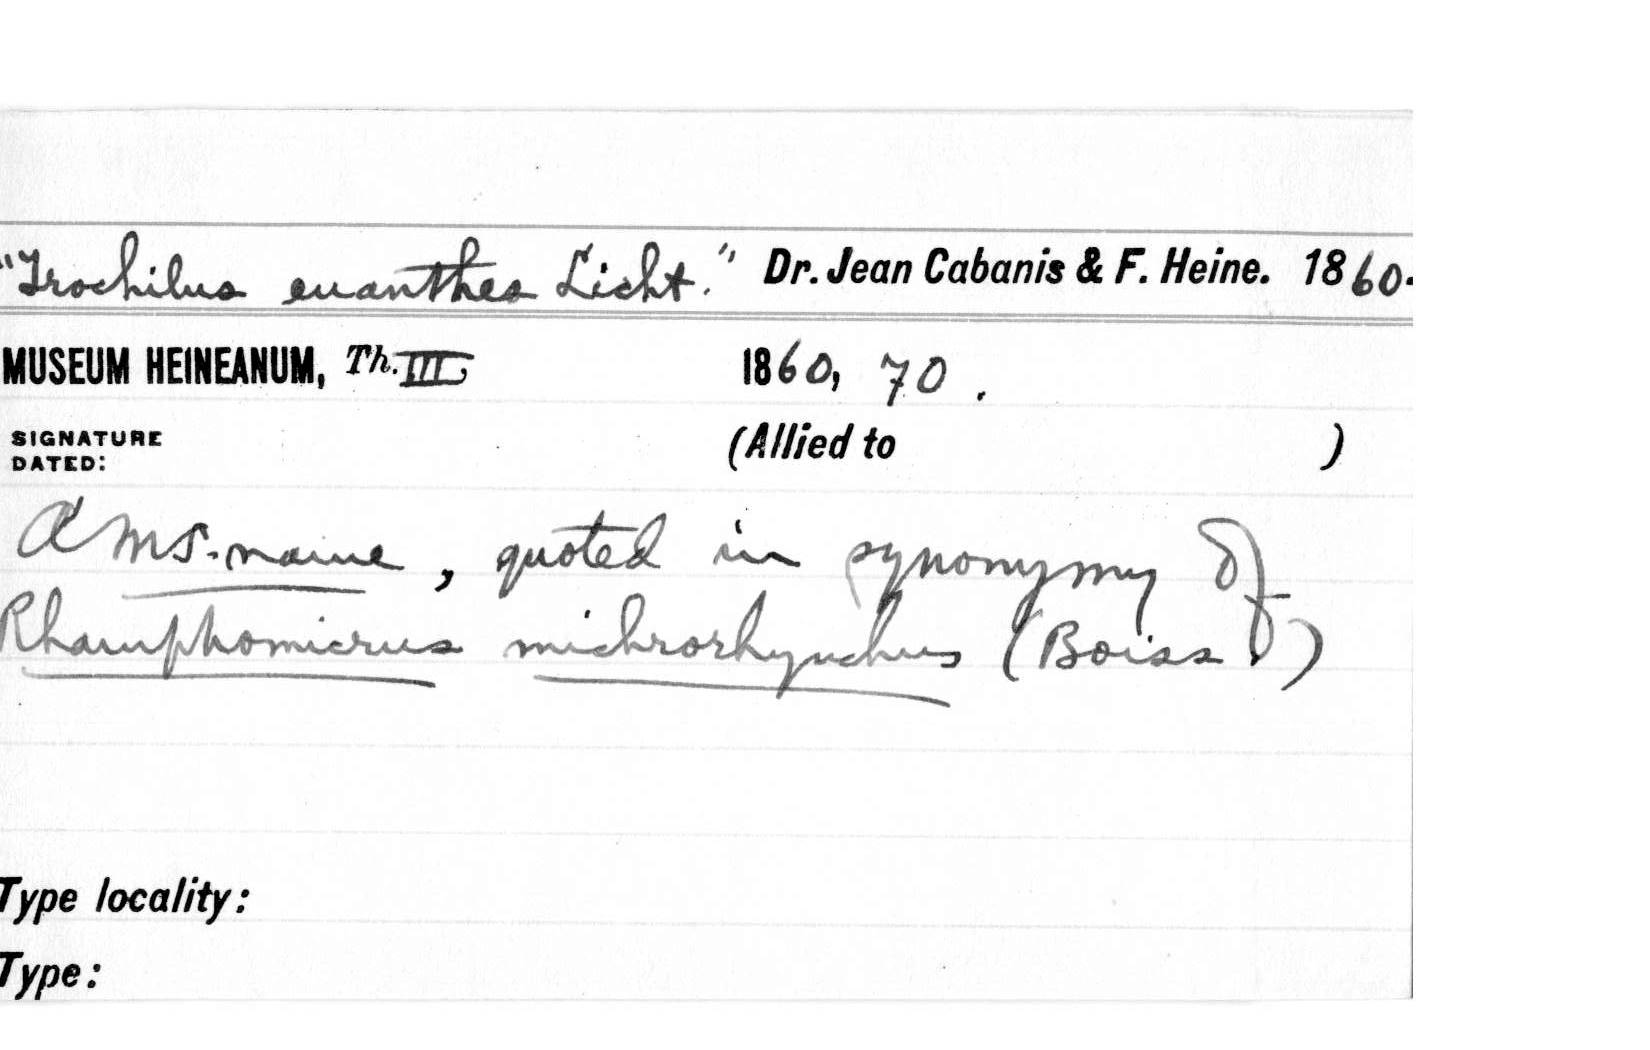 "Trochilus euanthes Licht." Dr. Jean Cabanis & F. Heine. 1860.
MUSEUM HEINEANUM, Th. III, 1860, 70.
SIGNATURE DATED: (Allied to )
A MS. name, quoted in synonymy of
Rhamphomicrus michrorhynchus (Boiss.)
Type locality:
Type: